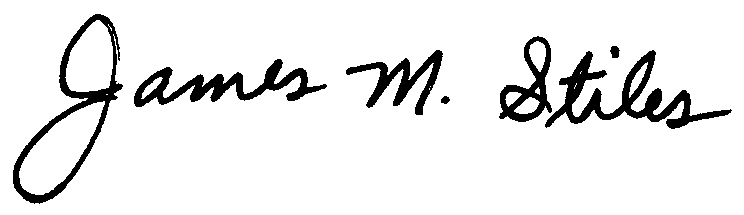 James M. Stiles